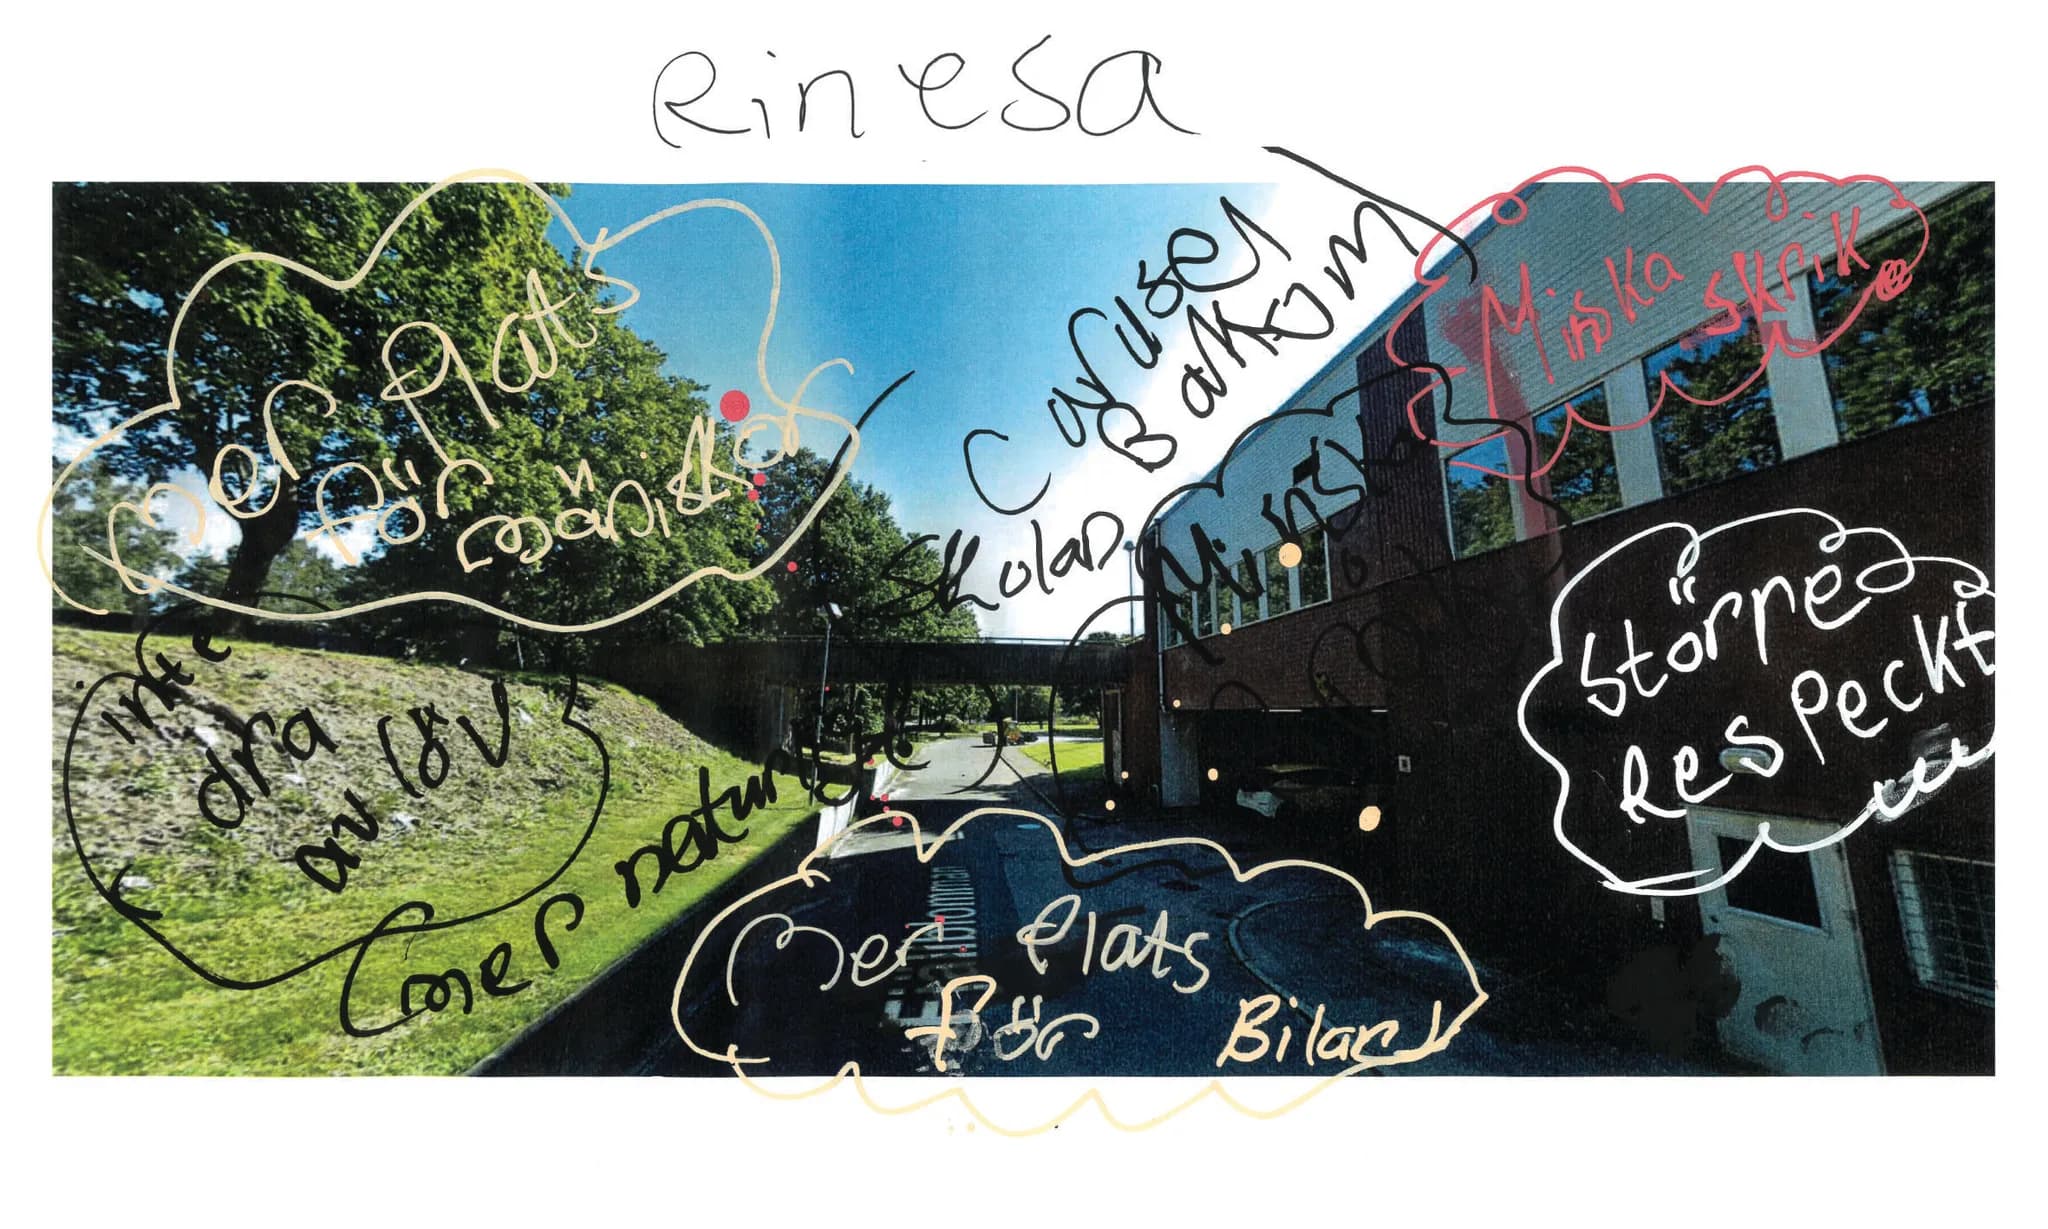 Rinesa
mer plats
för
mäniskor
Carusel
Bakom
Skolan
Minska
skrik
Minska
Störpe
Respeckt
inte
dra
av löv
mer natur
Mer Plats
för Bilar